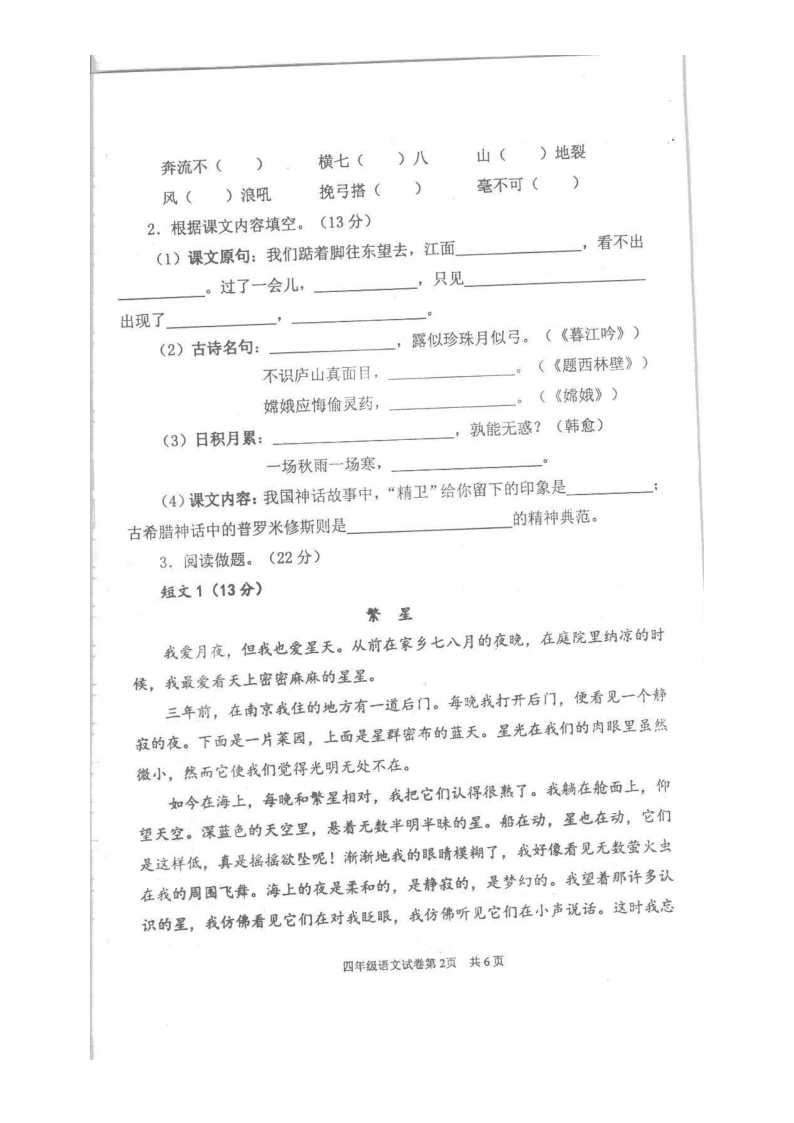 奔流不（　　） 横七（　　）八 山（　　）地裂
风（　　）浪吼 挽弓搭（　　） 毫不可（　　）
2．根据课文内容填空。（13 分）
（1）课文原句：我们踮着脚往东望去，江面______________，看不出
__________。过了一会儿，____________，只见____________________
出现了____________，______________。
（2）古诗名句：______________，露似珍珠月似弓。（《暮江吟》）
不识庐山真面目，______________。（《题西林壁》）
嫦娥应悔偷灵药，______________。（《嫦娥》）
（3）日积月累：____________________，孰能无惑？（韩愈）
一场秋雨一场寒，________________。
（4）课文内容：我国神话故事中，“精卫”给你留下的印象是__________；
古希腊神话中的普罗米修斯则是__________________的精神典范。
3．阅读做题。（22 分）
短文 1（13 分）
繁 星
我爱月夜，但我也爱星天。从前在家乡七八月的夜晚，在庭院里纳凉的时
候，我最爱看天上密密麻麻的星星。
三年前，在南京我住的地方有一道后门。每晚我打开后门，便看见一个静
寂的夜。下面是一片菜园，上面是星群密布的蓝天。星光在我们的肉眼里虽然
微小，然而它使我们觉得光明无处不在。
如今在海上，每晚和繁星相对，我把它们认得很熟了。我躺在舱面上，仰
望天空。深蓝色的天空里，悬着无数半明半昧的星。船在动，星也在动，它们
是这样低，真是摇摇欲坠呢！渐渐地我的眼睛模糊了，我好像看见无数萤火虫
在我的周围飞舞。海上的夜是柔和的，是静寂的，是梦幻的。我望着那许多认
识的星，我仿佛看见它们在对我眨眼，我仿佛听见它们在小声说话。这时我忘
四年级语文试卷第 2页 共 6 页